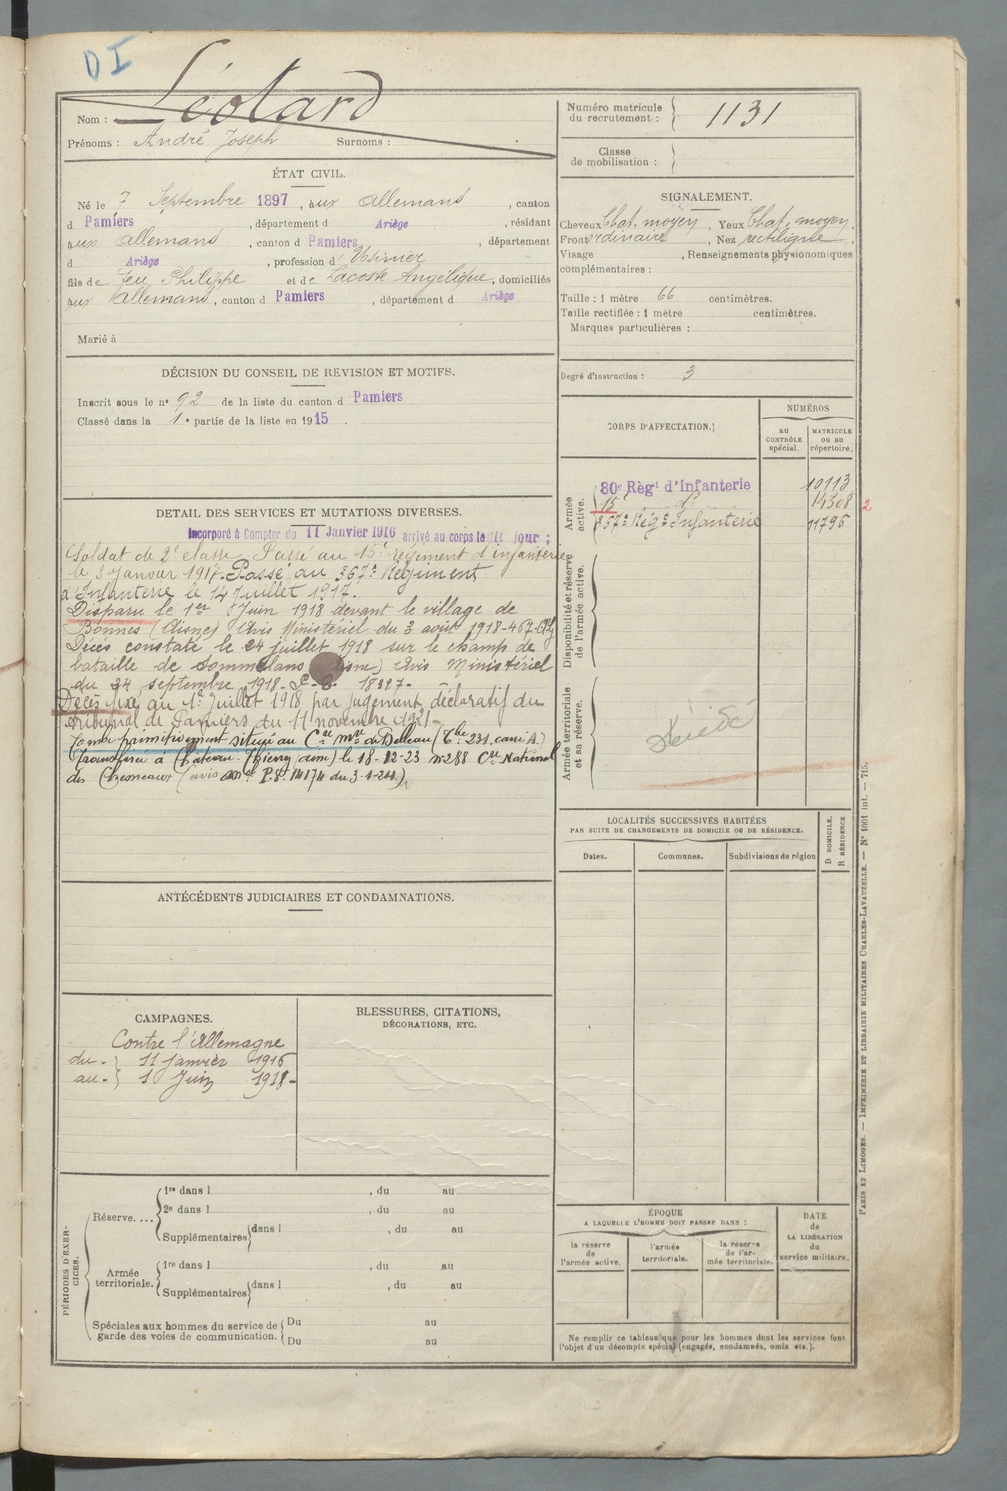 DI
Nom : Léotard
Prénoms : André Joseph Surnoms :
Numéro matricule du recrutement : 1131
Classe de mobilisation :
ÉTAT CIVIL.
Né le 7 Septembre 1897, aux Allemans, canton
d Pamiers, département d Ariège, résidant
aux Allemans, canton d Pamiers, département
d Ariège, profession d' Usinier
fils de feu Philippe et de Lacoste Angélique, domiciliés
aux Allemans, canton d Pamiers, département d Ariège
Marié à
SIGNALEMENT.
Cheveux Chat. moyen, Yeux Chat. moyen.
Front ordinaire, Nez rectiligne.
Visage , Renseignements physionomiques
complémentaires :
Taille : 1 mètre 66 centimètres.
Taille rectifiée : 1 mètre centimètres.
Marques particulières :
Degré d'instruction : 3
DÉCISION DU CONSEIL DE REVISION ET MOTIFS.
Inscrit sous le n° 92 de la liste du canton d Pamiers
Classé dans la 1e partie de la liste en 1915.
CORPS D'AFFECTATION.
NUMÉROS
au CONTRÔLE spécial.
MATRICULE ou au répertoire.
Armée active.
80e Régt d'Infanterie 10113
15e do 14308 2
367e Rég. Infanterie 11796
Disponibilité et réserve de l'armée active.
Armée territoriale et sa réserve.
décédé
DETAIL DES SERVICES ET MUTATIONS DIVERSES.
Incorporé à Compter du 11 Janvier 1916 arrivé au corps le dit jour ;
Soldat de 2e classe. Passé au 15e régiment d'infanterie
le 3 Janvier 1917. Passé au 367e Régiment
d'Infanterie le 14 Juillet 1917.
Disparu le 1er Juin 1918 devant le village de
Bonnes (Aisne) Avis Ministériel du 3 août 1918-
Décès constaté le 24 juillet 1918 sur le champ de
bataille de Sommelans (Aisne) Avis Ministériel
du 24 septembre 1918-
Décès fixé au 1er Juillet 1918 par jugement déclaratif du
tribunal de Pamiers du 11 novembre 1921-
Tombe primitivement située au Cre Mre de Belleau (Tbe 231. carré A.)
Transférée à Château-Thierry (Aisne) le 18-12-23 n° 288 Cre National
des Chesneaux (avis Mel P.S. 14174 du 3-1-24.)
LOCALITÉS SUCCESSIVES HABITÉES
PAR SUITE DE CHANGEMENTS DE DOMICILE OU DE RÉSIDENCE.
Dates. Communes. Subdivisions de région
D DOMICILE.
R RÉSIDENCE
ANTÉCÉDENTS JUDICIAIRES ET CONDAMNATIONS.
CAMPAGNES.
Contre l'Allemagne
du - } 11 Janvier 1916
au - } 1 Juin 1918 -
BLESSURES, CITATIONS,
DÉCORATIONS, ETC.
PÉRIODES D'EXERCICES.
Réserve....
1re dans l , du au
2e dans l , du au
Supplémentaires dans l , du au
Armée territoriale.
1re dans l , du au
Supplémentaires dans l , du au
Spéciales aux hommes du service de garde des voies de communication.
Du au
Du au
ÉPOQUE
A LAQUELLE L'HOMME DOIT PASSER DANS :
la réserve de l'armée active.
l'armée territoriale.
la réserve de l'armée territoriale.
DATE de LA LIBÉRATION du service militaire.
Ne remplir ce tableau que pour les hommes dont les services font
l'objet d'un décompte spécial (engagés, condamnés, omis etc.).
PARIS ET LIMOGES. — IMPRIMERIE ET LIBRAIRIE MILITAIRES CHARLES-LAVAUZELLE. — N° 1001 int. — 715.